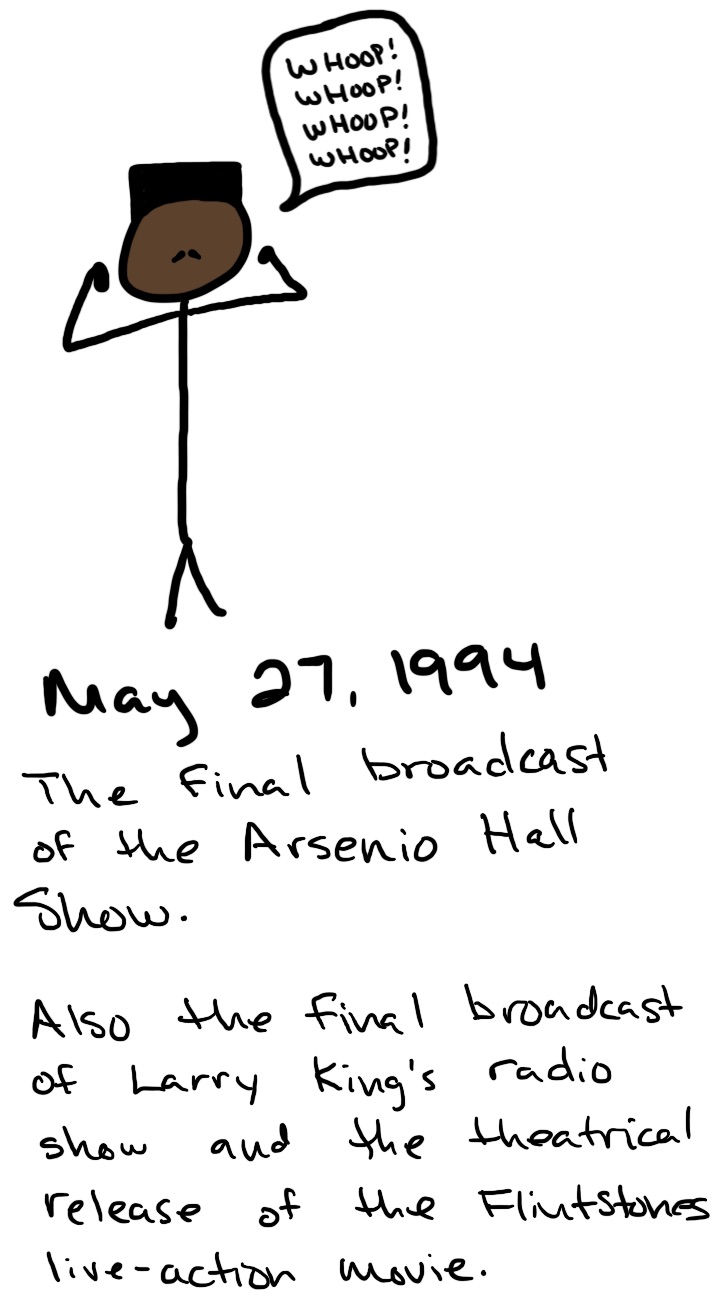 WHOOP!
WHOOP!
WHOOP!
WHOOP!
May 27, 1994
The final broadcast
of the Arsenio Hall
Show.
Also the final broadcast
of Larry King's radio
show and the theatrical
release of the Flintstones
live-action movie.